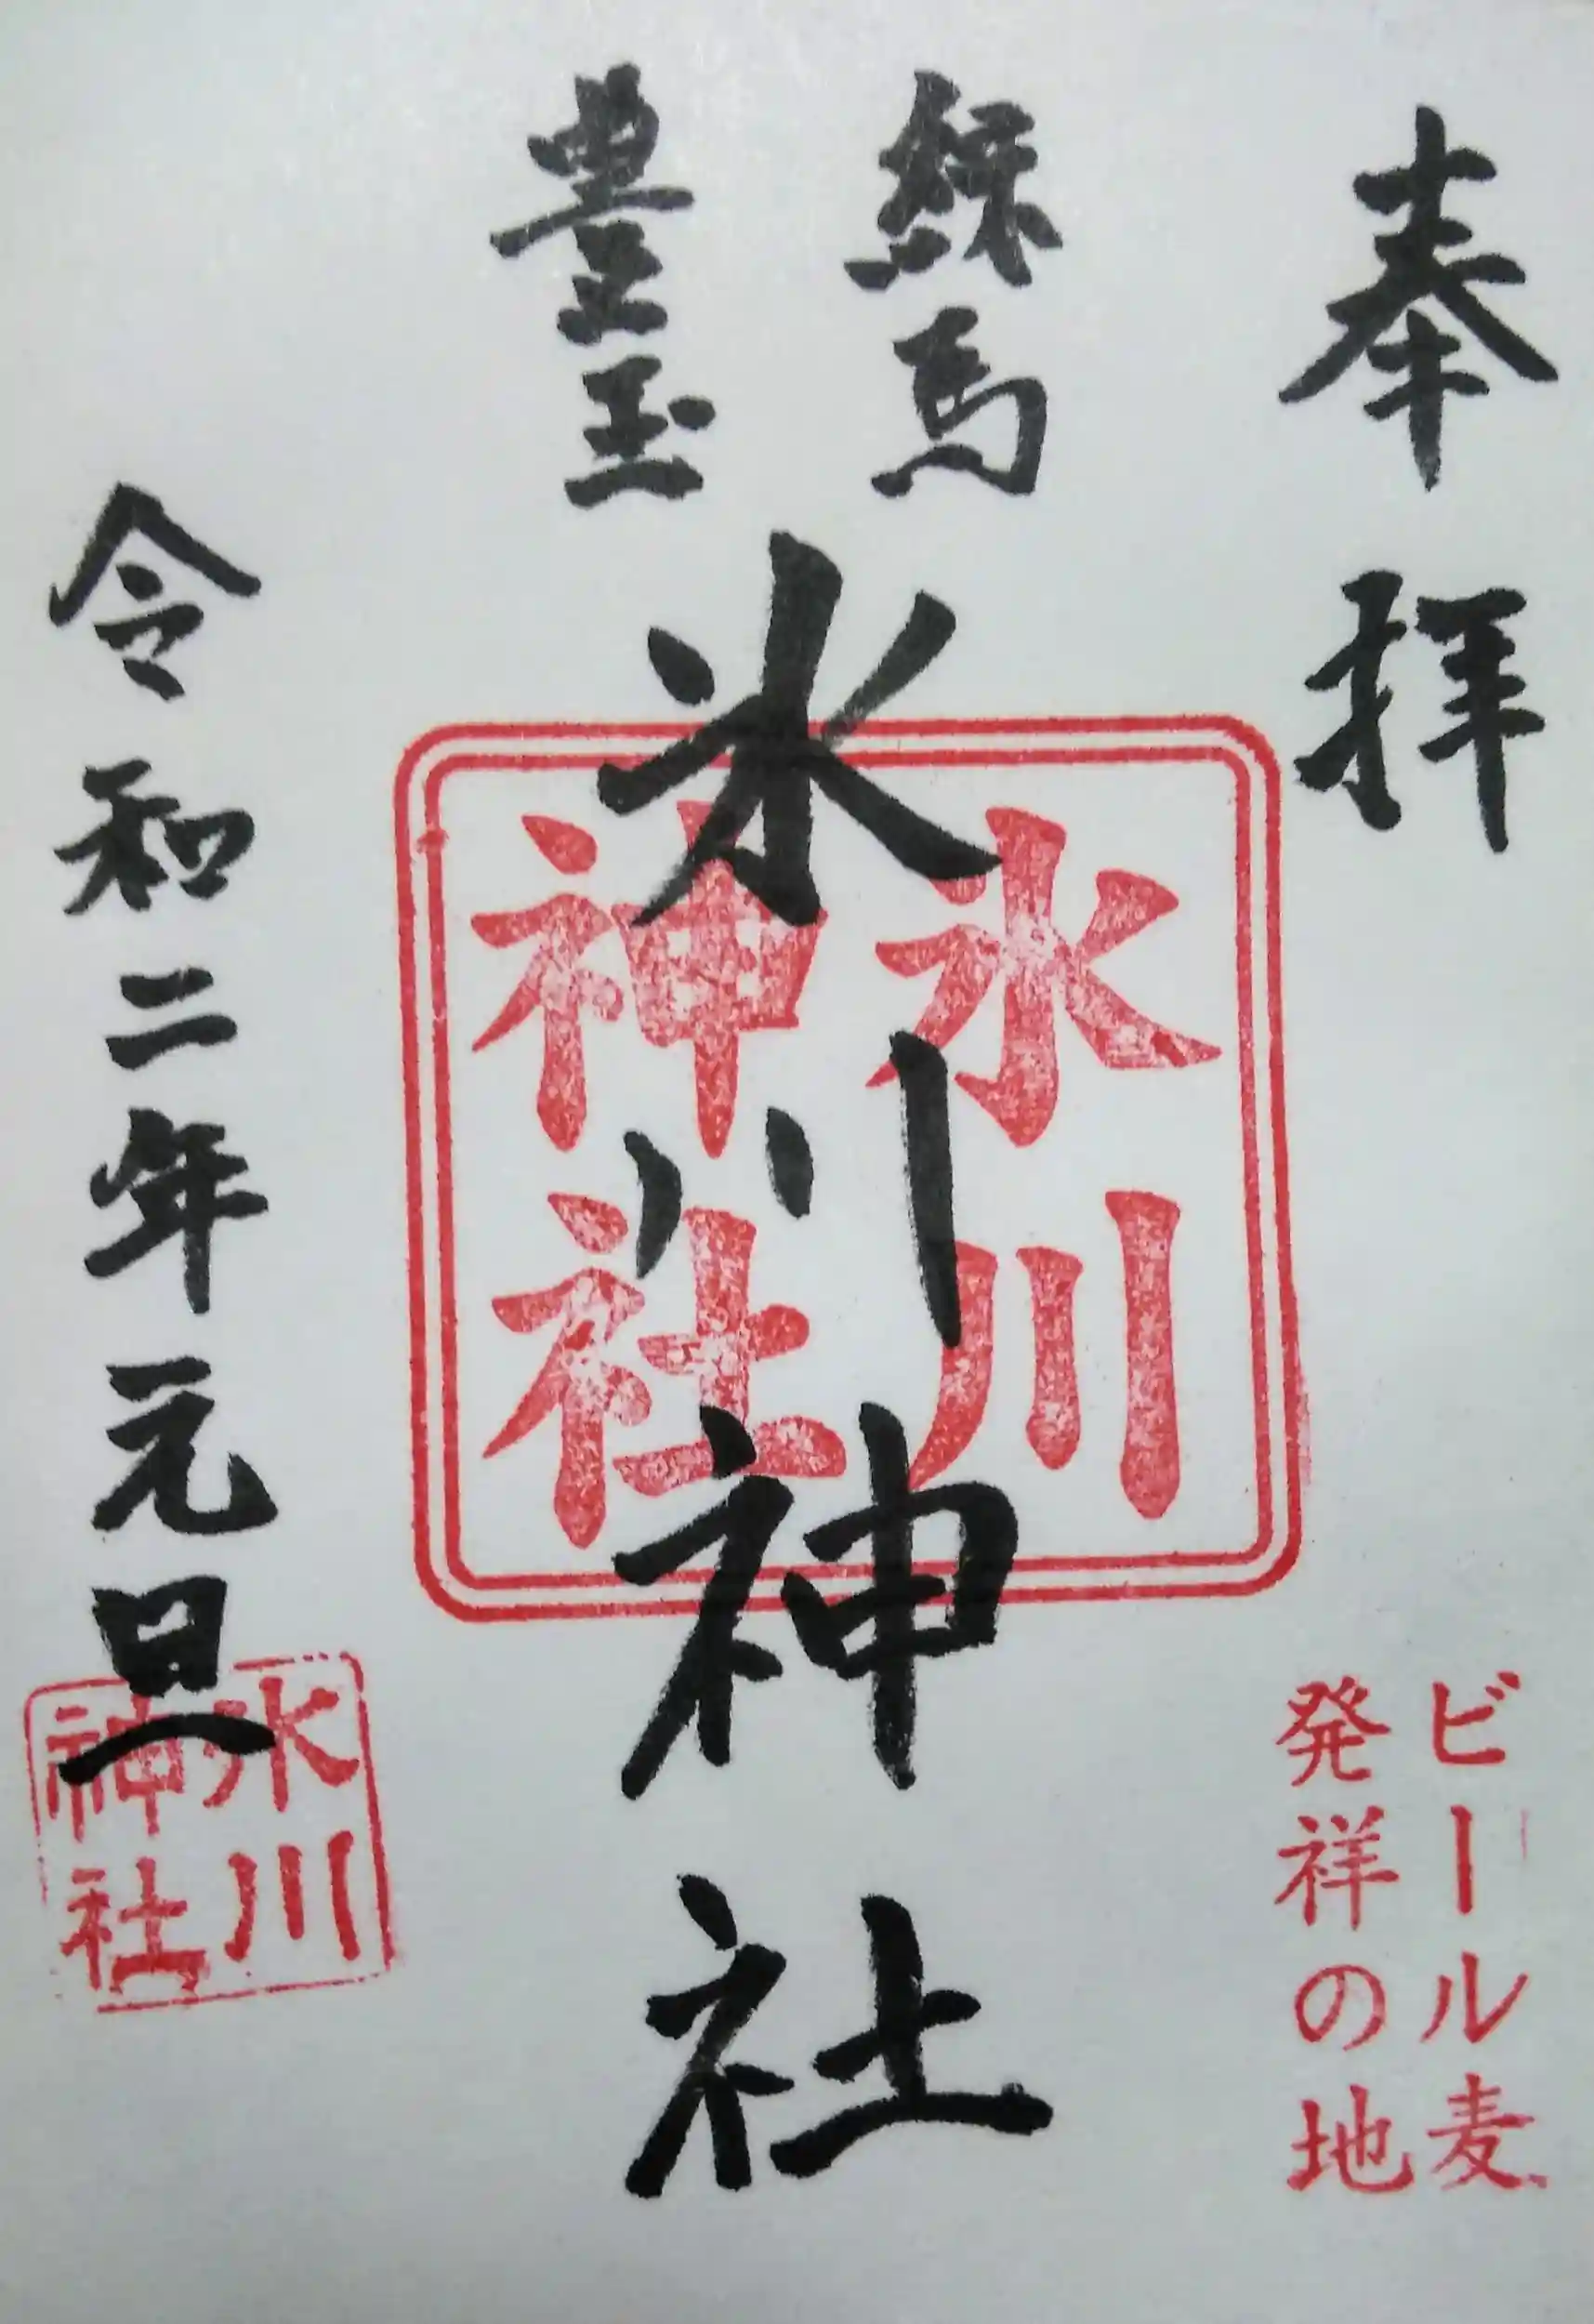 奉拝
ビール麦
発祥の地
練馬
豊玉
氷川神社
氷川
神社
令和二年元旦
氷川
神社